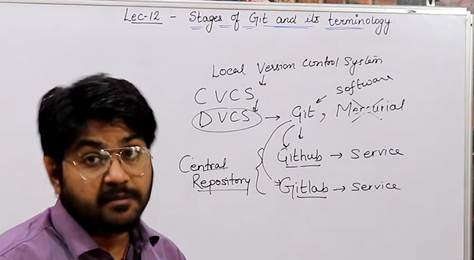 Lec-12 - Stages of Git and its terminology
Local Version Control System
CVCS
software
DVCS → Git, Mercurial
Central Repository
Github → Service
Gitlab → Service